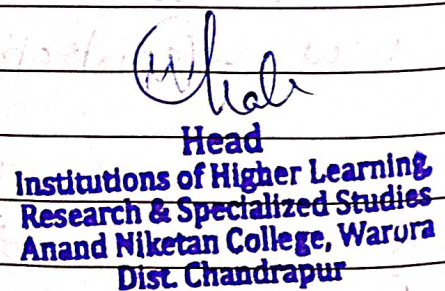 Head
Institutions of Higher Learning,
Research & Specialized Studies
Anand Niketan College, Warora
Dist. Chandrapur